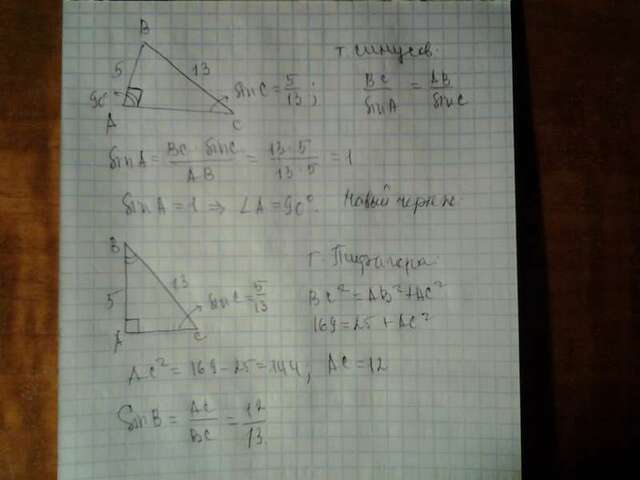 B
5 13
90° A C sin C = 5/13 ;
т. синусов.
BC/sin A = AB/sin C
sin A = BC · sin C / AB = 13 · 5 / 13 · 5 = 1
sin A = 1 ⇒ ∠A = 90°. Новый чертеж.
B
5 13
A C sin C = 5/13
т. Пифагора
BC² = AB² + AC²
169 = 25 + AC²
AC² = 169 - 25 = 144 , AC = 12
Sin B = AC/BC = 12/13.